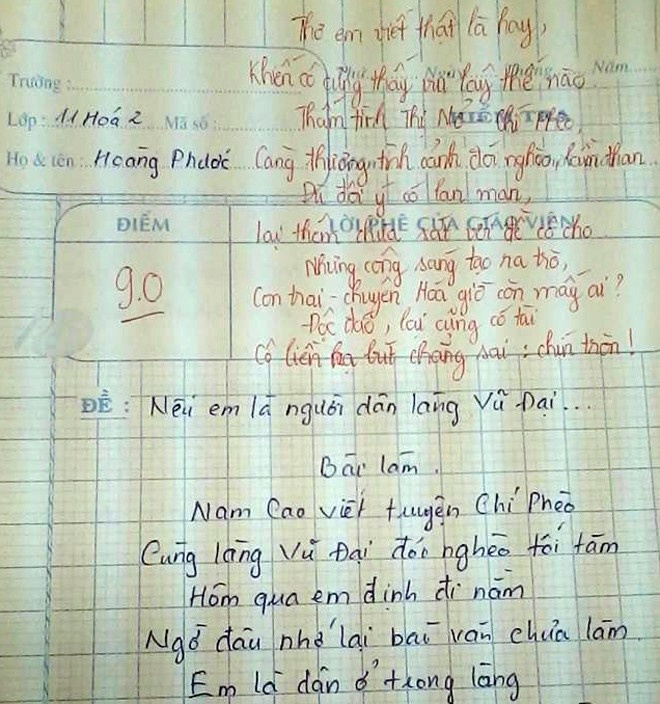 Thơ em viết thật là hay,
Khiến cô cũng thấy vui lây thế nào
Trường : Năm
Thấm tình Thị Nở Chí Phèo,
Lớp : 11 Hoá 2 Mã số :
Họ & tên : Hoàng Phước Càng thương tình cảnh đói nghèo, lầm than.
Dù đôi ý có lan man,
ĐIỂM LỜI PHÊ CỦA GIÁO VIÊN
lại thêm chưa sát với đề cô cho
Nhưng công sáng tạo ra trò,
9.0
Con trai - chuyên Hoá giờ còn mấy ai?
Đọc đáo, lại cũng có tài
Cô liền hạ bút chẳng sai : chín tròn!
ĐỀ : Nếu em là người dân làng Vũ Đại...
Bài làm.
Nam Cao viết truyện Chí Phèo
Cùng làng Vũ Đại đói nghèo tối tăm
Hôm qua em định đi nằm
Ngờ đâu nhớ lại bài văn chưa làm.
Em là dân ở trong làng